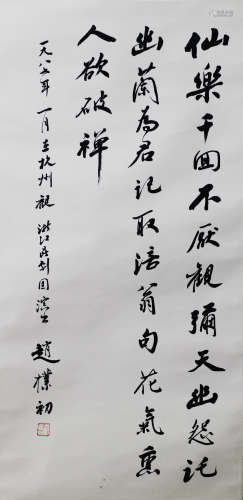 仙樂千回不厭觀彌天幽怨託
幽蘭為君記取涪翁句花氣熏
人欲破禪
一九八七年一月在杭州觀浙江昆劇團演出
趙樸初